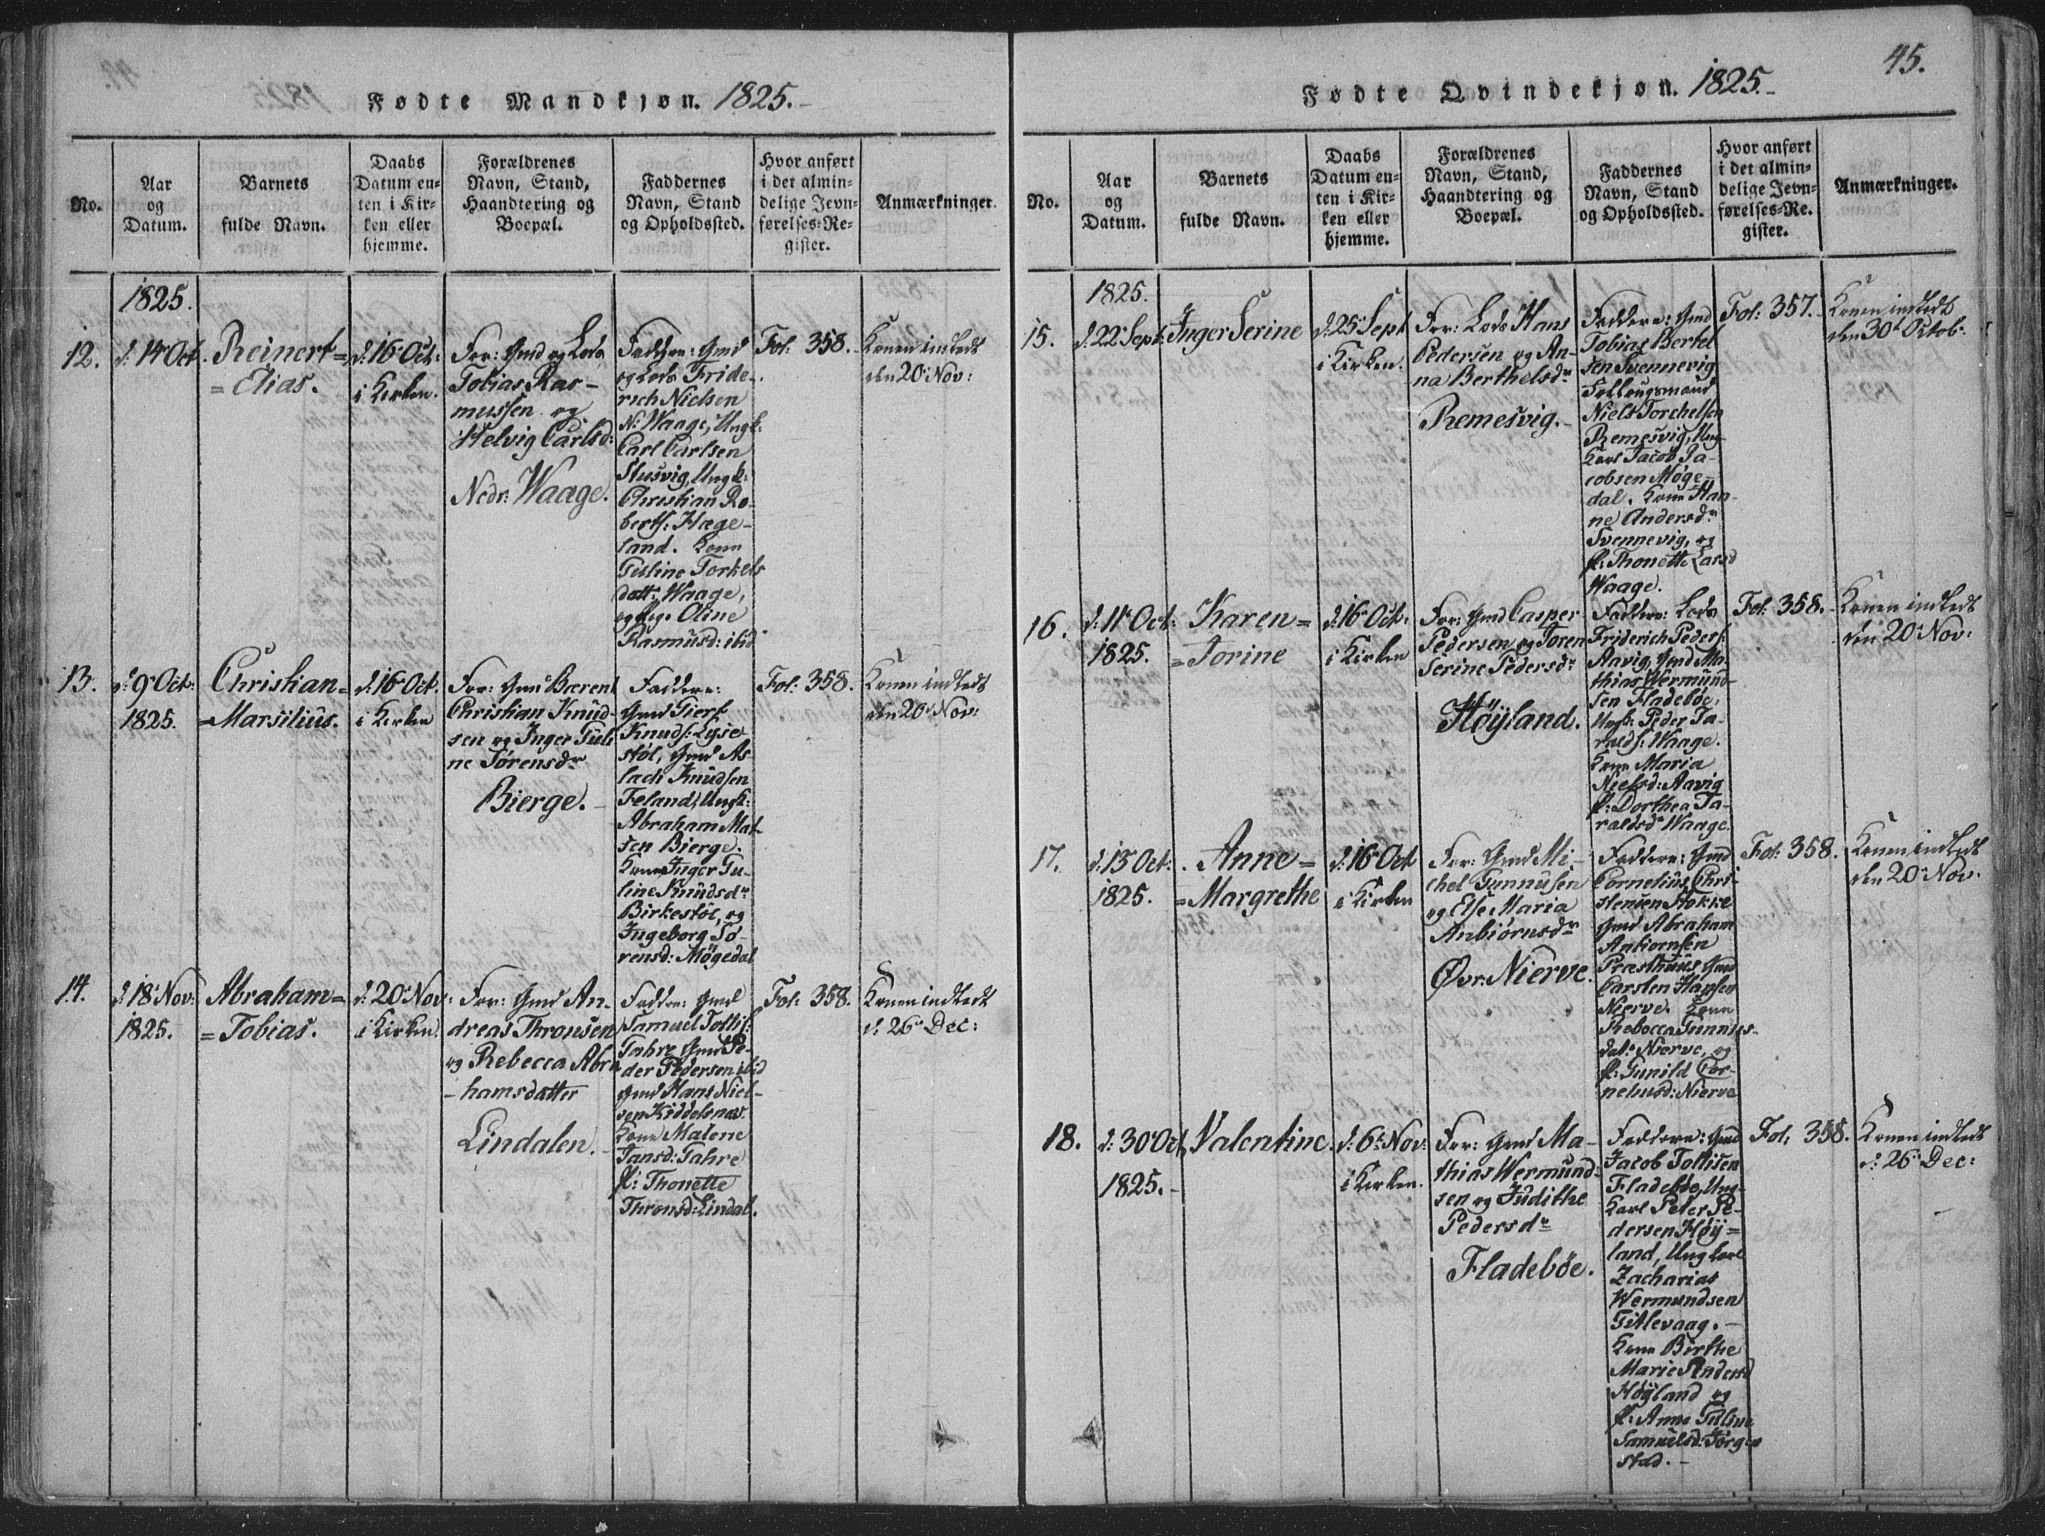 Fødte Mandkjøn. 1825.
No.
Aar
og
Datum.
Barnets
fulde Navn.
Daabs
Datum en-
ten i Kir-
ken eller
hjemme.
Forældrenes
Navn, Stand,
Haandtering og
Boepæl.
Faddernes
Navn, Stand
og Opholdssted.
Hvor anført
i det almin-
delige Jevn-
førelses-Re-
gister.
Anmærkninger.
1825.
12.
d: 14 Oct
Reinert=
=Elias.
d: 16 Oct:
i Kirken.
For: Gmd og Lods
Tobias Ras-
mussen og
Helvig Carlsd:
Nedr: Waage.
Faddere: Gmd
og Lods Fride-
rich Nielsen
N: Waage, Ungk:
Carl Carlsen
Stusvig, Ungk:
Christian Ro-
berts: Hæge-
land. Kone
Torkels
datt: Waage,
og Pig: Oline
Rasmusd: ibid
Fol: 358.
Konen indledt
den 20 Nov:
13.
d: 9 Oct:
1825.
Christian=
=Marsilius.
d: 16 Oct.
i Kirken
For: Gmd Bærent
Christian Knud-
sen og Inger Juli
ne Sørensdr
Bierge.
Faddere:
Gmd Giert
Knuds: Lyse
støl, Gmd As-
lach Knudsen
Feland, Ungk:
Abraham Mat-
sen Bierge.
Kone Inger Ju-
line Knudsdr
Birkestøl, og
Ingeborg Sø-
rensd: Møgedal
Fol: 358.
Konen indledt
den 20 Nov:
14.
d: 18 Nov:
1825.
Abraham=
=Tobias.
d: 20 Nov:
i Kirken.
For: Gmd An-
dreas Thronsen
og Rebecca Abra
hamsdatter
Lindalen.
Faddere: Gmd
Samuel Tollis:
Jahre Gmd Pe-
der Pedersen ibid
Gmd Hans Niel-
sen
Kone Malene
Jansd: Jahre
P: Thonette
Thronsd: Lindal.
Fol: 358.
Konen indledt
d: 26 Dec:
45.
Fødte Qvindekjøn. 1825.
No.
Aar
og
Datum.
Barnets
fulde Navn.
Daabs
Datum en-
ten i Kir-
ken eller
hjemme.
Forældrenes
Navn, Stand,
Haandtering og
Boepæl.
Faddernes
Navn, Stand
og Opholdssted.
Hvor anført
i det almin-
delige Jevn-
førelses-Re-
gister.
Anmærkninger.
1825.
15.
d: 22 Sept:
Inger Serine
d: 25 Sept
i Kirken.
For: Lods Hans
Pedersen og An-
na Berthelsdr
Remesvig.
Faddere: Gmd
Tobias Bertel
sen Svennevig
Niels Torchelsen
Remesvig, Ung
Karl Jacob Ja-
cobsen Møge-
dal. Kone Han-
ne Andersdr
Svennevig, og
P: Thonette Larsd
Waage.
Fol: 357.
Konen indledt
den 30 Octob:
16.
d: 11 Oct:
1825.
Karen=
=Torine
d: 16 Oct:
i Kirken
For: Gmd Casper
Pedersen og Toren
Serine Pedersdr
Höyland.
Faddere: Lods
Friderich Peders:
Aavig, Gmd Ma-
thias Wermund-
sen Fladebøe,
Ungk: Peder Ta-
ralds: Waage.
Kone Maria
Nielsd: Aavig
P: Dorthea Ta-
raldsdr Waage.
Fol: 358.
Konen indledt
den 20 Nov:
17.
d: 13 Oct:
1825.
Anne=
=Margrethe
d: 16 Oct
i Kirken
For: Gmd Mi-
chel Gunnusen
og Else Maria
Anbiørnsdr
Øvr: Nierve.
Faddere: Gmd
Cornelius Chri-
stensen Stokke
Gmd Abraham
Anbiørnsen
Præsthuus Gmd
Carsten Hansen
Nierve. Kone
Rebecca Gunnus-
dat: Nierve, og
P: Gunild Cor-
neliusd: Nierve
Fol: 358.
Konen indledt
den 20 Nov:
18.
d: 30 Oct
1825.
Valentine.
d: 6 Nov:
i Kirken.
For: Gmd Ma-
thias Wermund-
sen og Judithe
Pedersdr
Fladebøe.
Faddere: Gmd
Jacob Tollisen
Fladebøe, Ung-
Karl Peter Pe-
dersen Höÿ=
land, Ungkarl
Zacharias
Wermundsen
Titlevaag.
Kone Birthe
Marie Andersd
Höÿland og
P: Anne Juline
Samuelsd: Jørge
stad.
Fol, 358.
Konen indledt
d: 26 Dec: